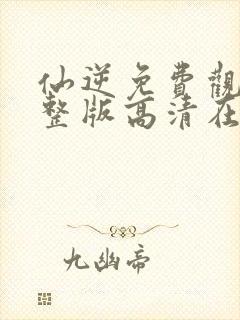 仙逆免費觀
整版高清在
九幽帝